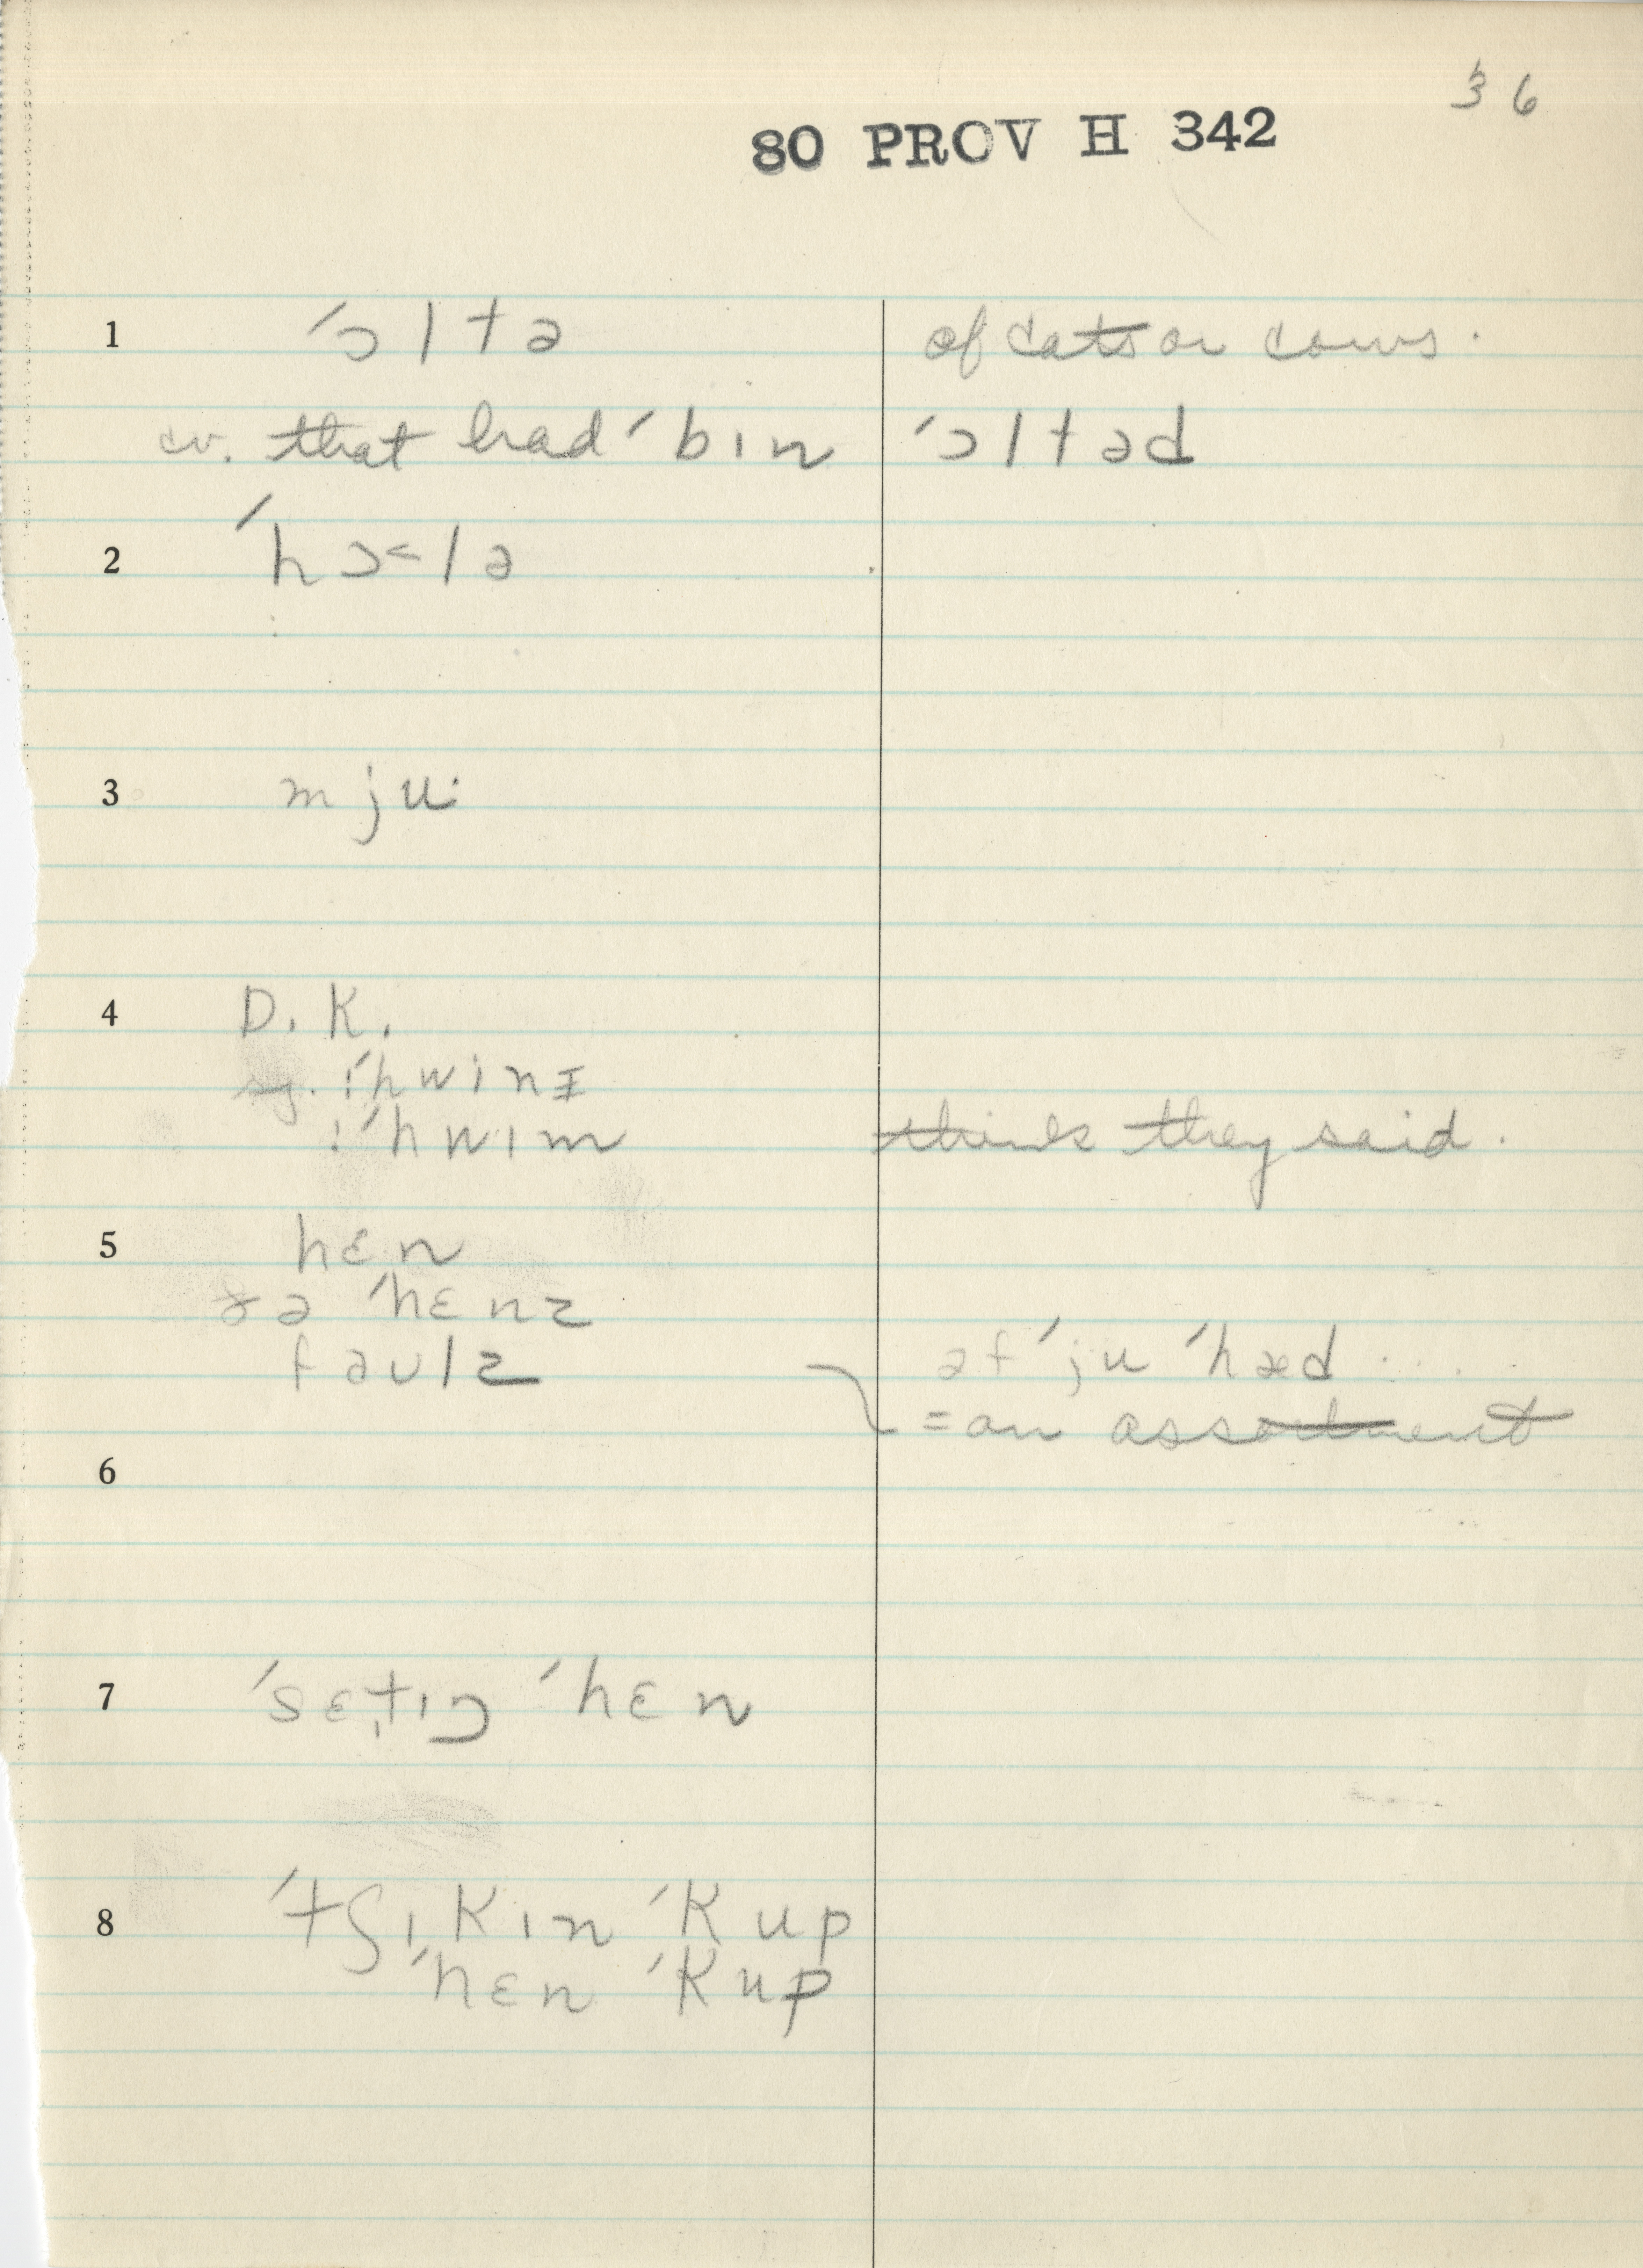 36
80 PROV H 342
1 ˈɔltə of cats or cows.
cv. that had ˈbɪn ˈɔltəd
2 ˈhɔ˂lə
3 mju·
4 D. K.
sg. ɪˈhwinɪ
ɪˈhwɪm think they said.
5 hɛn
ðə ˈhɛnz
faulz əf ˈju ˈhæd ....
= an assortment
6
7 ˈsɛt̬ɪŋ ˈhɛn
8 ˈtʃɪkɪn ˈkup
ˈhɛn ˈkup